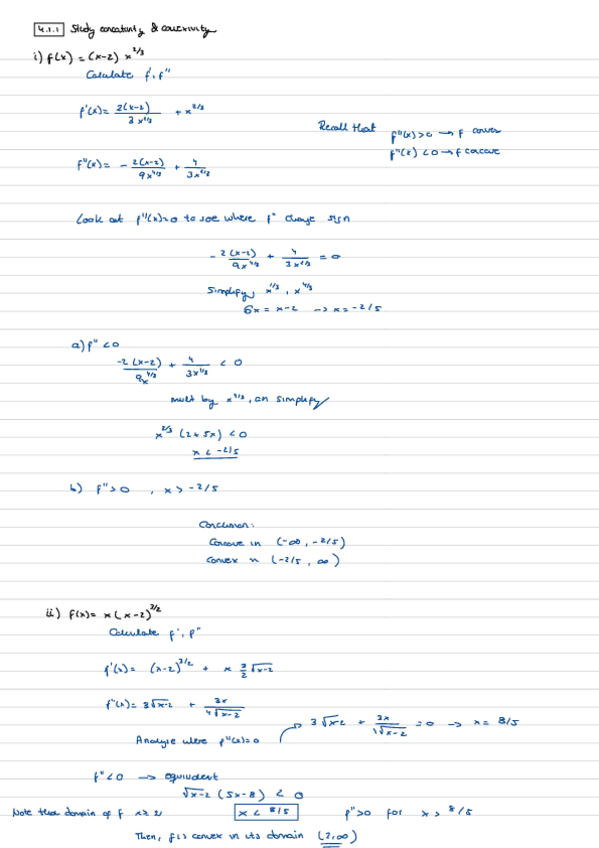 4.1.1 Study concavity & convexity
i) f(x) = (x-2) x^{2/3}
Calculate f', f''
f'(x) = \frac{2(x-2)}{3x^{1/3}} + x^{2/3}
Recall that f''(x)>0 → f convex
f''(x) <0 → f concave
f''(x) = - \frac{2(x-2)}{9x^{4/3}} + \frac{4}{3x^{1/3}}
Look at f''(x)=0 to see where f'' change sign
- \frac{2(x-2)}{9x^{4/3}} + \frac{4}{3x^{1/3}} = 0
Simplify, x^{1/3}, x^{4/3}
6x = x-2 → x = -2/5
a) f'' <0
\frac{-2(x-2)}{9x^{4/3}} + \frac{4}{3x^{1/3}} < 0
mult by x^{4/3}, an simplify
x^{2/3} (2+5x) <0
x < -2/5
b) f'' > 0 , x > -2/5
Conclusion:
Concave in (-∞, -2/5)
Convex in (-2/5, ∞)
ii) f(x) = x(x-2)^{3/2}
Calculate f', f''
f'(x) = (x-2)^{3/2} + x \frac{3}{2} \sqrt{x-2}
f''(x) = 3\sqrt{x-2} + \frac{3x}{4\sqrt{x-2}}
3\sqrt{x-2} + \frac{3x}{4\sqrt{x-2}} = 0 → x = 8/5
Analyse where f''(x)=0
f'' <0 → equivalent
\sqrt{x-2} (5x-8) < 0
Note that domain of f x≥2
x < 8/5
f''>0 for x > 8/5
Then, f is convex in its domain (2,∞)